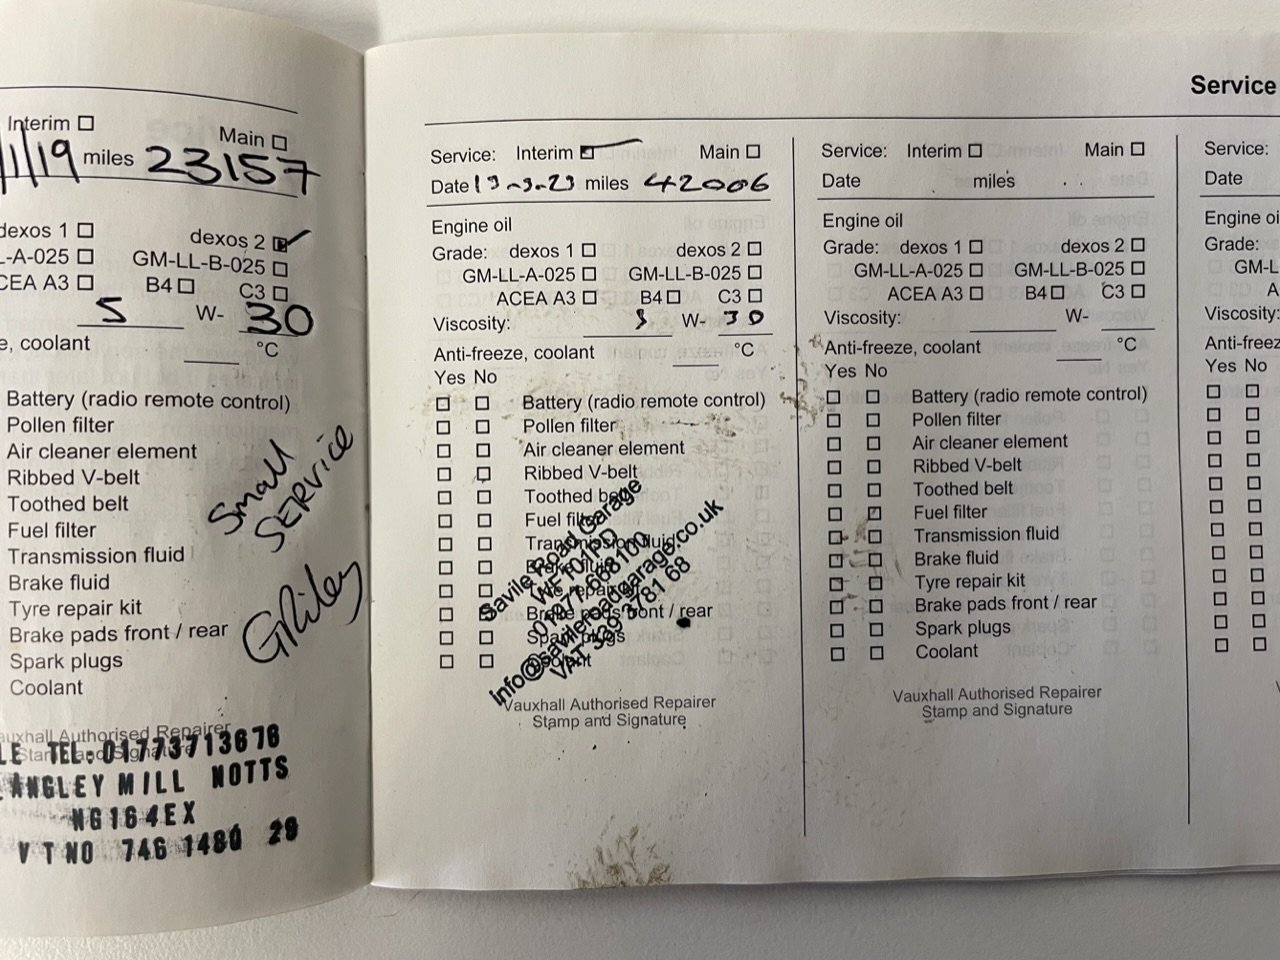 Interim Main
/1/19 miles 23157
dexos 1 dexos 2
L-A-025 GM-LL-B-025
CEA A3 B4 C3
5 W- 30
e, coolant °C
Battery (radio remote control)
Pollen filter
Air cleaner element
Ribbed V-belt
Toothed belt
Fuel filter
Transmission fluid
Brake fluid
Tyre repair kit
Brake pads front / rear
Spark plugs
Coolant
Small
SERVICE
GRiley
auxhall Authorised Repairer
Stamp and Signature
LE TEL:01773713676
LANGLEY MILL NOTTS
NG164EX
VTNO 746 1480 29
Service
Service: Interim Main
Date miles 42006
Engine oil
Grade: dexos 1 dexos 2
GM-LL-A-025 GM-LL-B-025
ACEA A3 B4 C3
Viscosity: W- 30
Anti-freeze, coolant °C
Yes No
Battery (radio remote control)
Pollen filter
Air cleaner element
Ribbed V-belt
Toothed belt
Fuel filter
Transmission fluid
Brake fluid
Tyre repair kit
Brake pads front / rear
Spark plugs
Coolant
Savile Road Garage
WF10 1PD
01977 668100
info@savileroadgarage.co.uk
VAT 393 3781 68
Vauxhall Authorised Repairer
Stamp and Signature
Service: Interim Main
Date miles
Engine oil
Grade: dexos 1 dexos 2
GM-LL-A-025 GM-LL-B-025
ACEA A3 B4 C3
Viscosity: W-
Anti-freeze, coolant °C
Yes No
Battery (radio remote control)
Pollen filter
Air cleaner element
Ribbed V-belt
Toothed belt
Fuel filter
Transmission fluid
Brake fluid
Tyre repair kit
Brake pads front / rear
Spark plugs
Coolant
Vauxhall Authorised Repairer
Stamp and Signature
Service:
Date
Engine oi
Grade:
GM-L
A
Viscosity:
Anti-freeze
Yes No